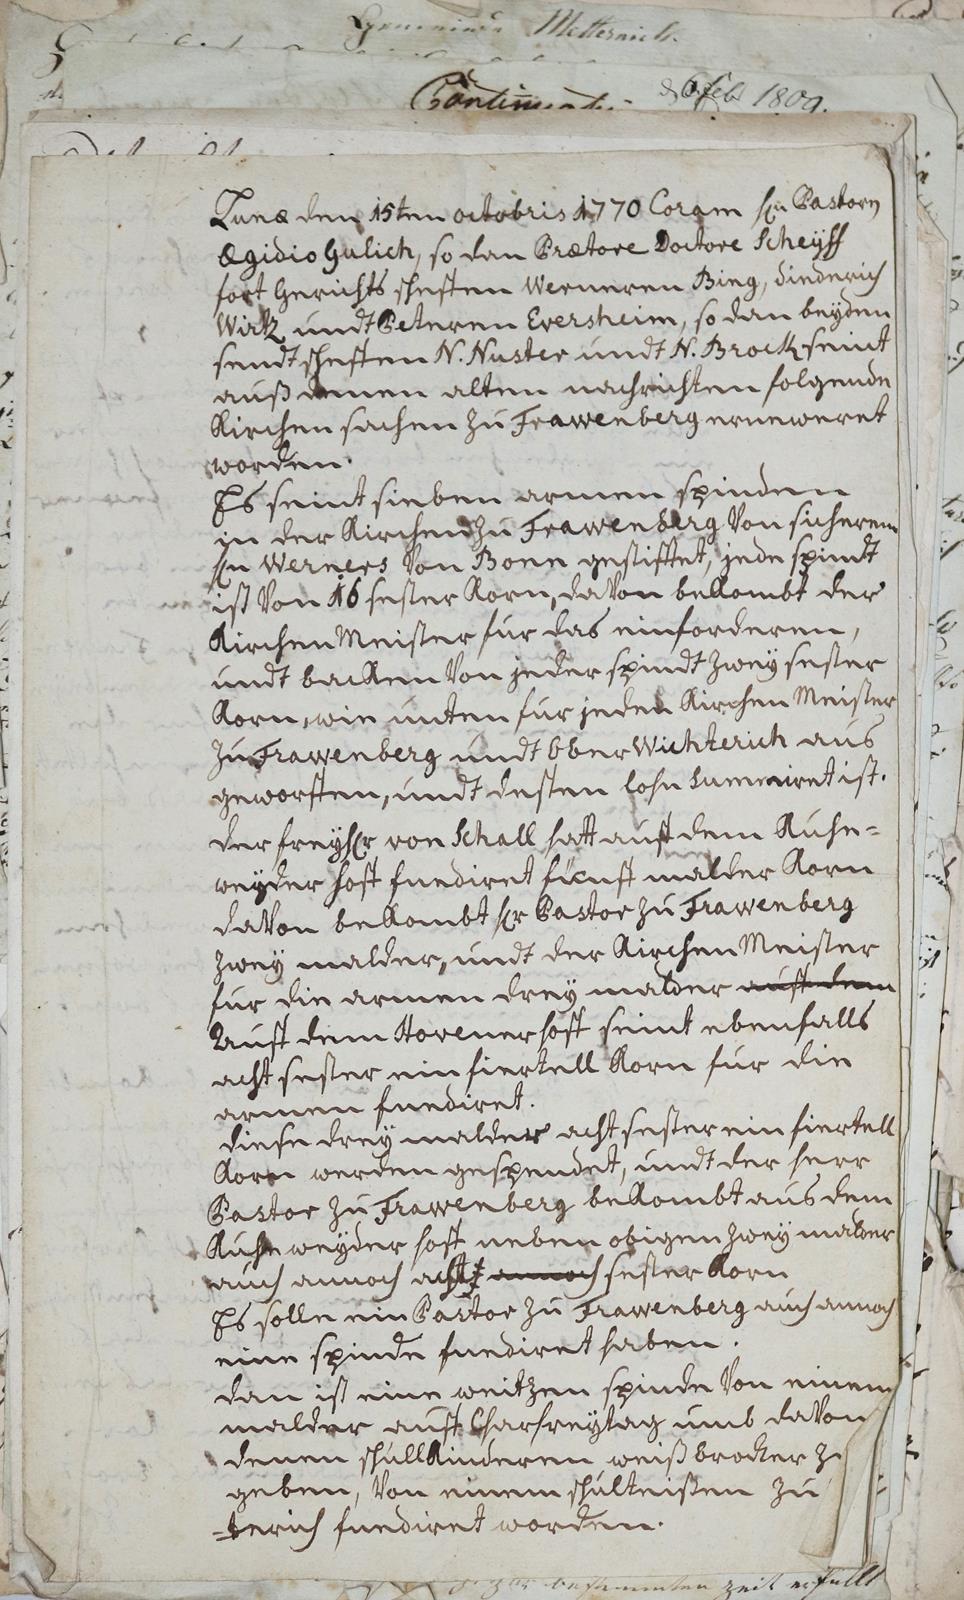 Gemeinde Metternich.
Continuatio 6 feb 1809.
Lunæ den 15ten octobris 1770 Coram hn Pastory
Ægidio Gulich, so dan Prætore Doctore Scheÿff
fort Gerichts scheffen Werneren Bing, diederich
Wirtz undt Peteren Eversheim, so dan beÿden
sendt scheffen N. Nuster undt N. Brock seint
auß denen alten nachrichten folgende
Kirchen sachen zu Frawenberg erneweret
worden.
Es seint sieben armen spinden
in der Kirchen zu Frawenberg Von sicherem
hn Werners Von Bonn gestifftet, jede spindt
ist Von 16 sester Korn, daVon bekombt der
Kirchen Meister fur das einforderen,
undt backen Von jeder spindt zweÿ sester
Korn, wie unten fur jeden Kirchen Meister
zu Frawenberg undt Ober Wichterich aus
geworffen, undt dessen lohn summiret ist.
der freÿhr von Schall hatt auff dem Kuhe=
weÿder hoff fundiret fünff malder Korn
daVon bekombt hr Pastor zu Frawenberg
zweÿ malder, undt der Kirchen Meister
fur die armen dreÿ malder auff dem
Auff dem Hovener hoff seint ebenfalls
acht sester ein fiertell Korn fur die
armen fundiret.
diese dreÿ malder acht sester ein fiertell
Korn werden gespendet, undt der herr
Pastor zu Frawenberg bekombt aus dem
Kuhe weÿder hoff neben obigen zweÿ malder
auch annoch acht annoch sester Korn
Es solle ein Pastor zu Frawenberg auch annoch
eine spinde fundiret haben.
dan ist eine weitzen spinde Von einem
malder auff Charfreÿtag umb daVon
denen schull Kinderen weiß brodter z
geben, Von einem schulteissen zu
=terich fundiret worden.
bestammten zeit erfullt